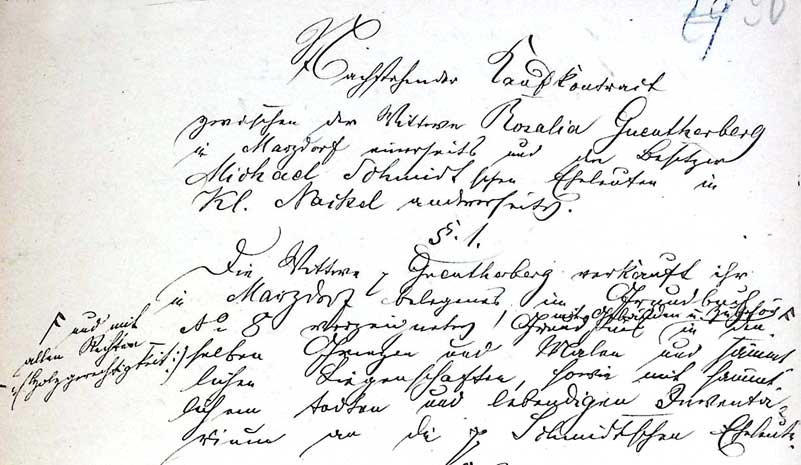 Nachstehender Kaufkontract
zwischen der Wittwe Rosalia Guentherberg
in Marzdorf einerseits und den Besitzer
Michael Schmidt'schen Eheleuten in
Kl. Nackel andrerseits.
§. 1.
Die Wittwe p Guentherberg verkauft ihr
in Marzdorf belegenes im Grundbuch
mit Gebäuden u. Zubehör
No 8 verzeichnetes Grundstück in den
selben Grenzen und Malen und sämmt
lichen Liegenschaften, sowie mit sämmt
lichem todten und lebendigen Inventa
rium an die p Schmidtschen Eheleute
und mit
allen Rechten
(Holzgerechtigkeit:)